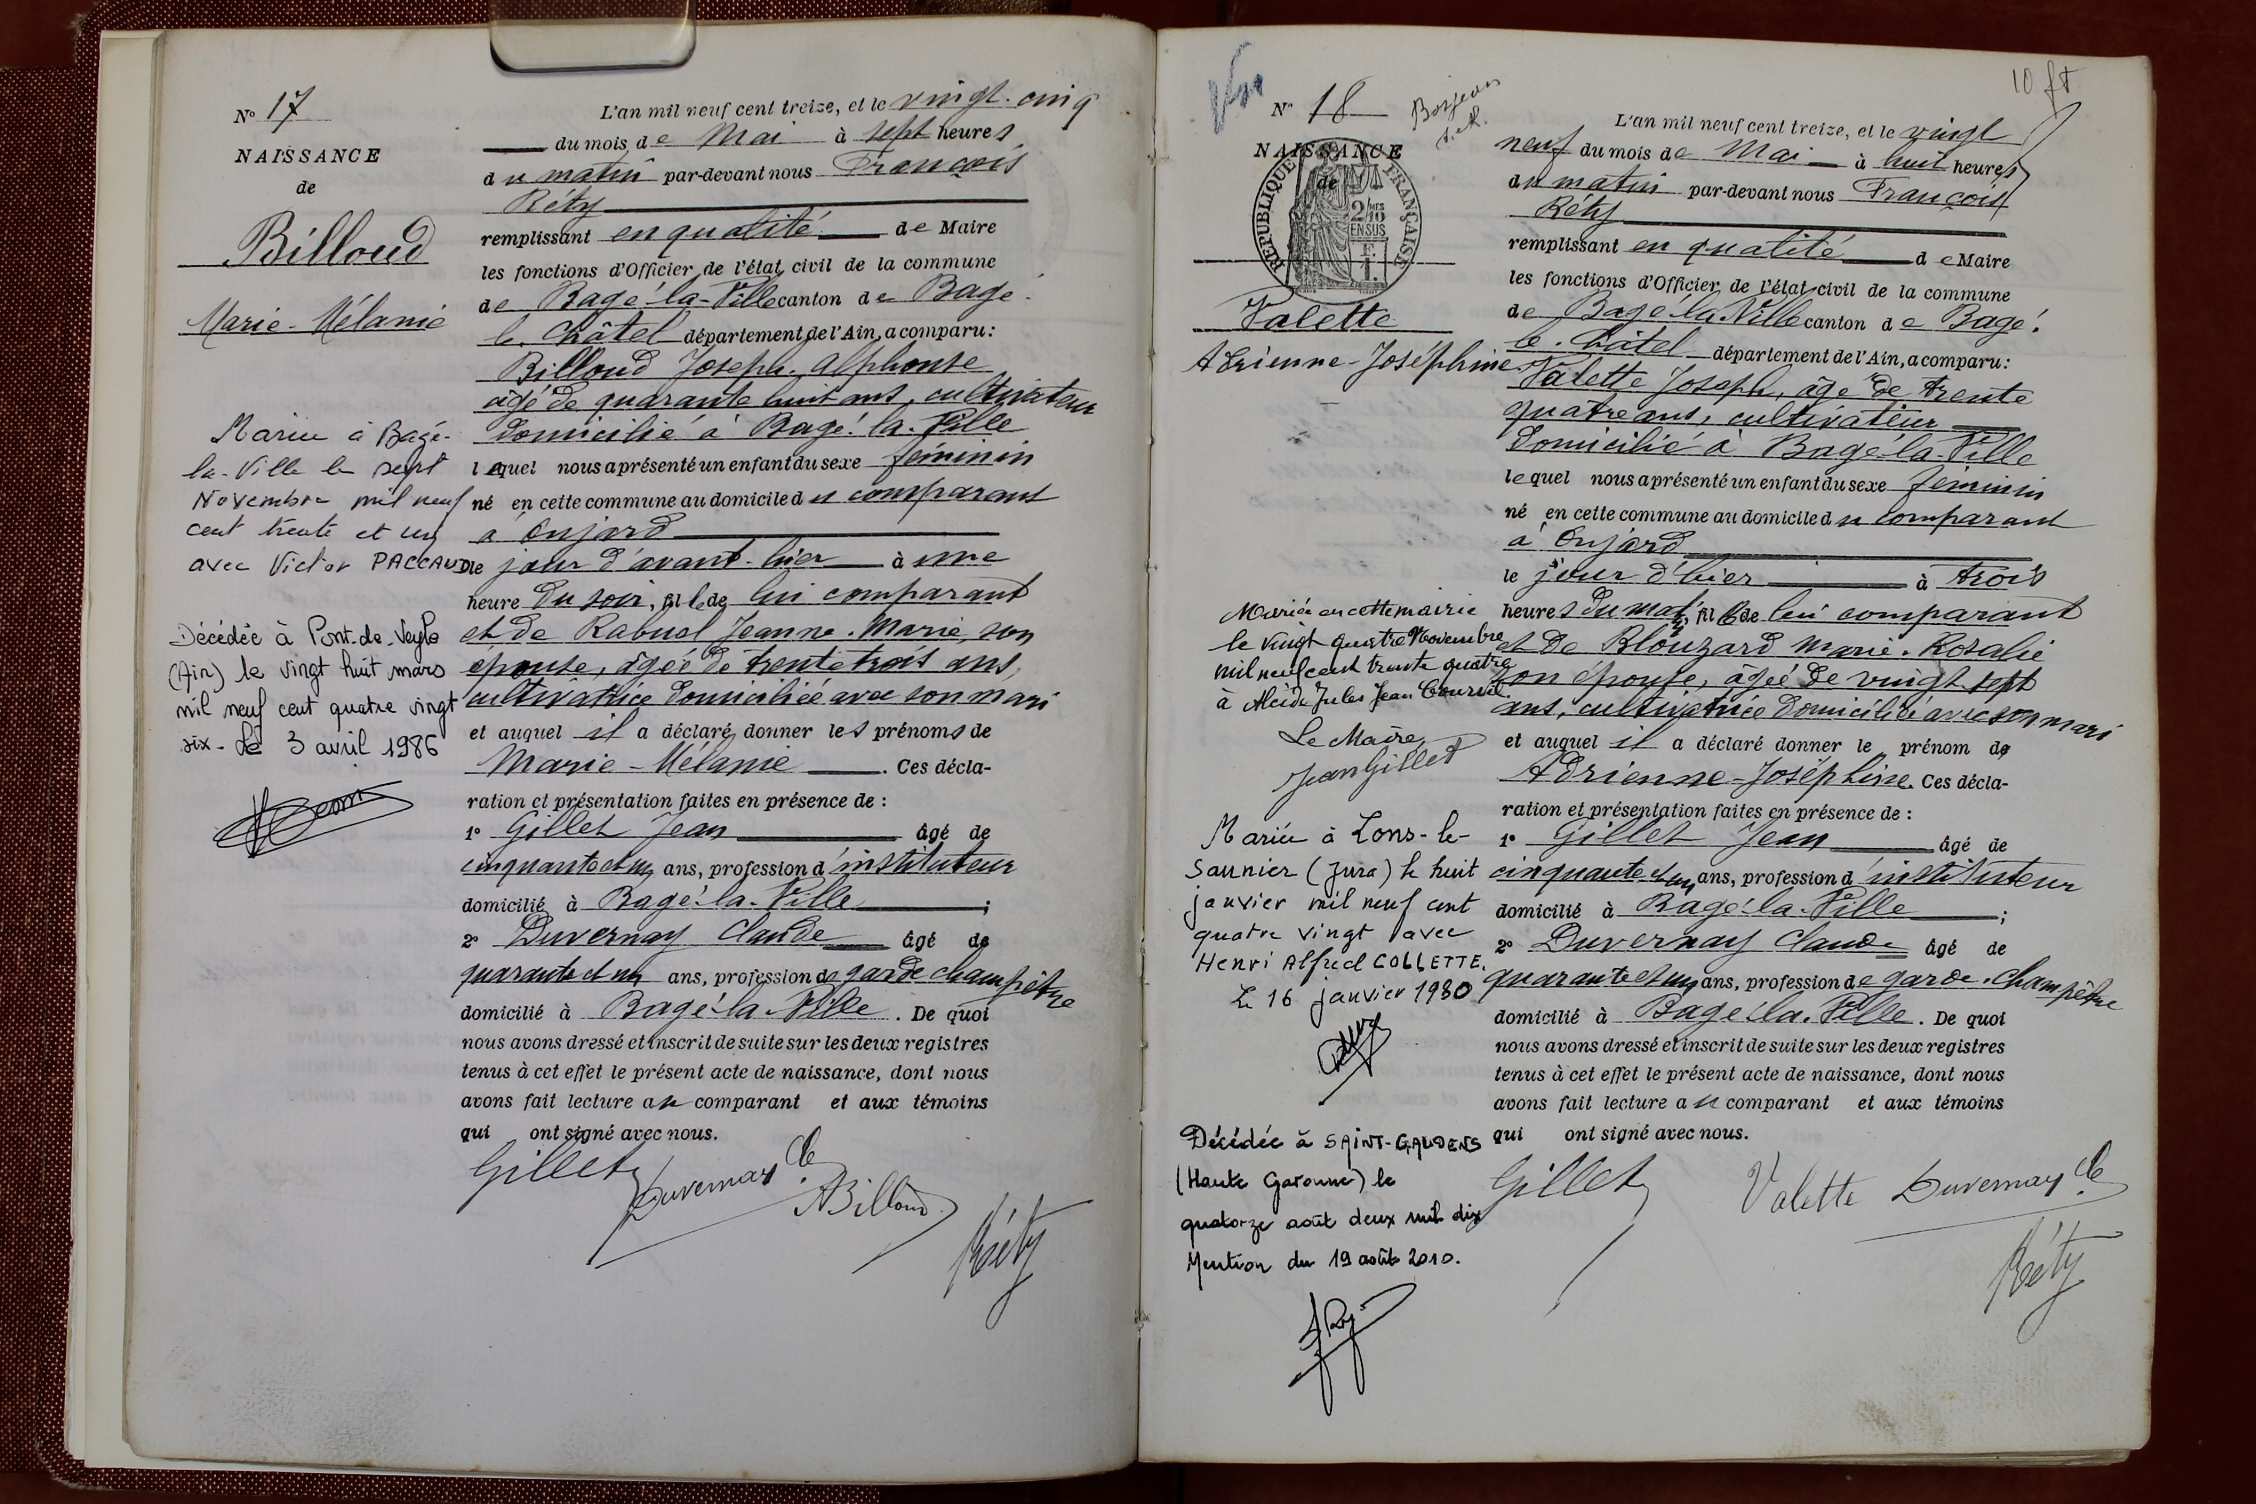 N° 17
NAISSANCE
de
Billoud
Marie-Mélanie
Mariée à Bagé-
la-Ville le sept
Novembre mil neuf
cent trente et un
avec Victor PACCAUD
Décédée à Pont-de-Veyle
(Ain) le vingt huit mars
mil neuf cent quatre vingt
six - Le 3 avril 1986
L'an mil neuf cent treize, et le vingt-cinq
du mois de Mai à sept heures
du matin par-devant nous François
Réty
remplissant en qualité de Maire
les fonctions d'Officier de l'état civil de la commune
de Bagé-la-Ville canton de Bagé-
le-Châtel département de l'Ain, a comparu:
Billoud Joseph-Alphonse
âgé de quarante huit ans, cultivateur
domicilié à Bagé-la-Ville
lequel nous a présenté un enfant du sexe féminin
né en cette commune au domicile du comparant
à Onjard
le jour d'avant-hier à une
heure du soir, fille de lui comparant
et de Rabuel Jeanne-Marie, son
épouse, âgée de trente trois ans,
cultivatrice domiciliée avec son mari
et auquel il a déclaré donner les prénoms de
Marie-Mélanie. Ces décla-
ration et présentation faites en présence de :
1° Gillet Jean âgé de
cinquante et un ans, profession d'instituteur
domicilié à Bagé-la-Ville ;
2° Duvernay Claude âgé de
quarante et un ans, profession de garde champêtre
domicilié à Bagé-la-Ville. De quoi
nous avons dressé et inscrit de suite sur les deux registres
tenus à cet effet le présent acte de naissance, dont nous
avons fait lecture au comparant et aux témoins
qui ont signé avec nous.
Gillet Duvernay Cde ABilloud
Réty
10 ft
N° 18
NAISSANCE
de
RÉPUBLIQUE FRANÇAISE
2/10 MES
EN SUS
F.
1.
Valette
Adrienne-Joséphine
Mariée en cette mairie
le vingt quatre Novembre
mil neuf cent trente quatre
à Alcide Jules Jean
Le Maire
Jean Gillet
Mariée à Lons-le-
Saunier (Jura) le huit
janvier mil neuf cent
quatre vingt avec
Henri Alfred COLLETTE.
Le 16 janvier 1980
Décédée à SAINT-GAUDENS
(Haute Garonne) le
quatorze août deux mil dix
Mention du 19 août 2010.
L'an mil neuf cent treize, et le vingt
neuf du mois de Mai à huit heures
du matin par-devant nous François
Réty
remplissant en qualité de Maire
les fonctions d'Officier de l'état civil de la commune
de Bagé-la-Ville canton de Bagé-
le-Châtel département de l'Ain, a comparu:
Valette Joseph, âgé de trente
quatre ans, cultivateur
domicilié à Bagé-la-Ville
lequel nous a présenté un enfant du sexe féminin
né en cette commune au domicile du comparant
à Onjard
le jour d'hier à trois
heures du matin, fille de lui comparant
et de Blouzard Marie-Rosalie
son épouse, âgée de vingt sept
ans, cultivatrice domiciliée avec son mari
et auquel il a déclaré donner le prénom de
Adrienne-Joséphine. Ces décla-
ration et présentation faites en présence de :
1° Gillet Jean âgé de
cinquante et un ans, profession d'instituteur
domicilié à Bagé-la-Ville ;
2° Duvernay Claude âgé de
quarante et un ans, profession de garde-champêtre
domicilié à Bagé-la-Ville. De quoi
nous avons dressé et inscrit de suite sur les deux registres
tenus à cet effet le présent acte de naissance, dont nous
avons fait lecture au comparant et aux témoins
qui ont signé avec nous.
Gillet Valette Duvernay Cde
Réty